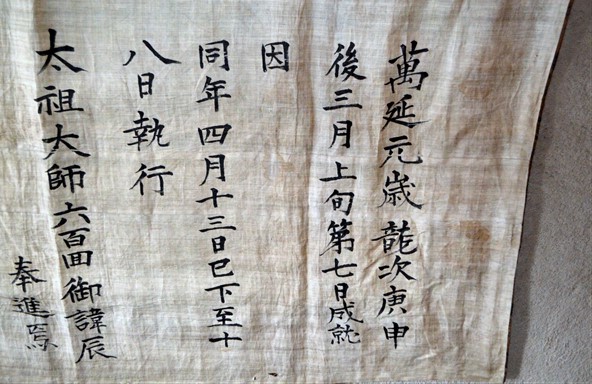 萬延元歳龍次庚申
後三月上旬第七日成就
因
同年四月十三日巳下至十
八日執行
太祖大師六百回御諱辰
奉進焉